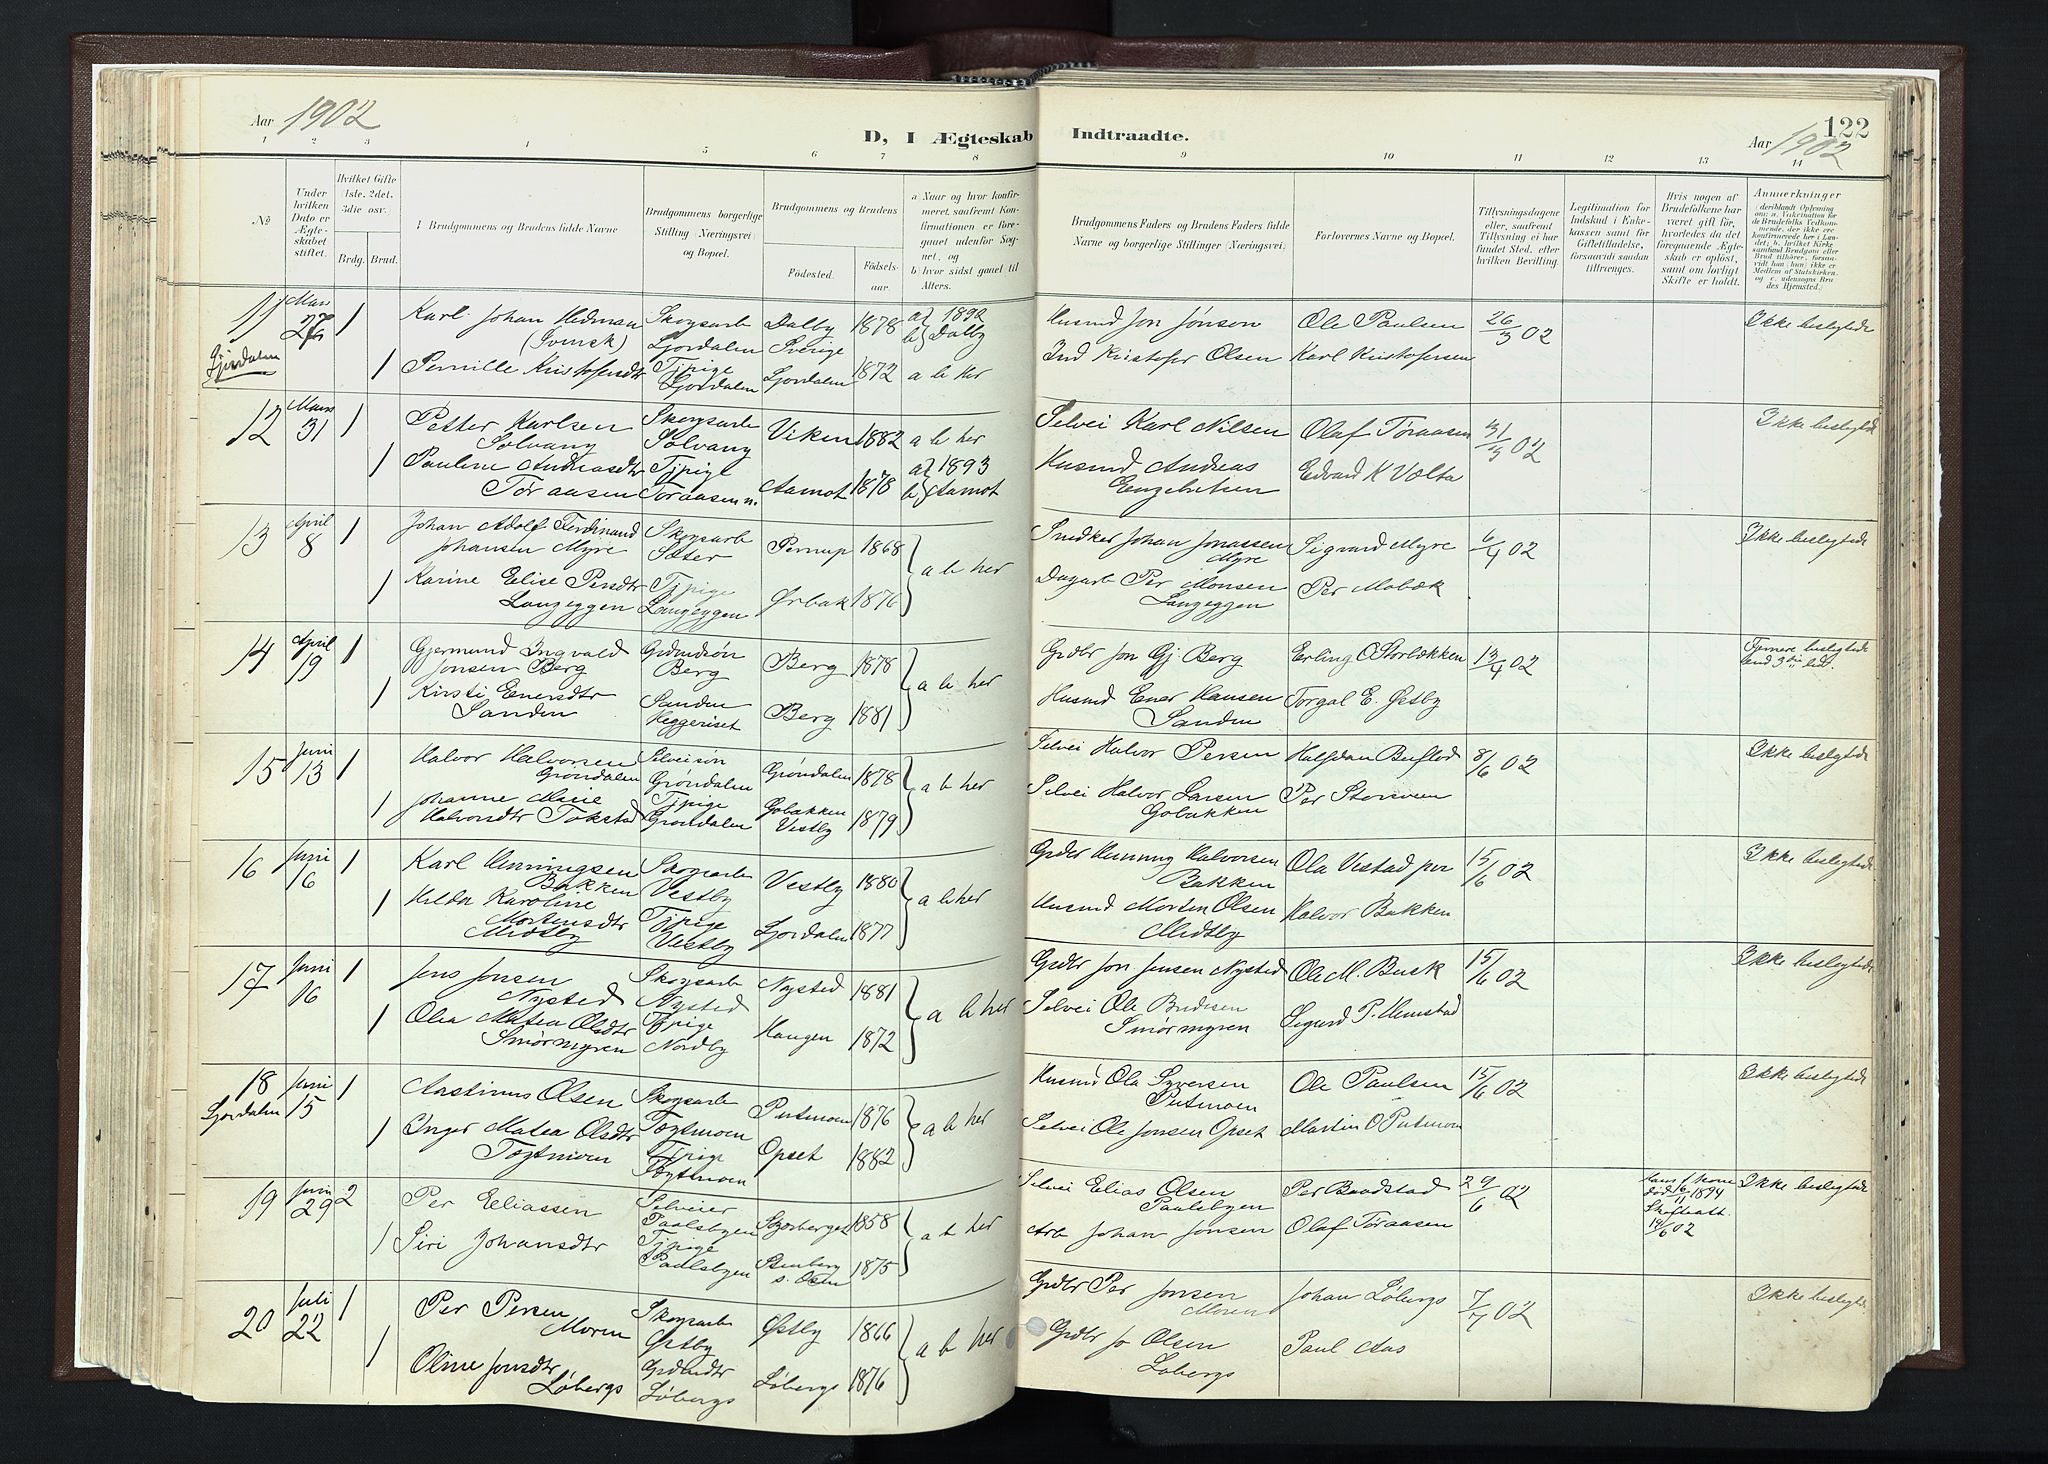 Aar 1902
D, I Ægteskab Indtraadte.
122
Aar 1902
1 2 3 4 5 6 7 8 9 10 11 12 13 14
No
Under hvilken Dato er Ægteskabet stiftet.
Hvilket Gifte 1ste, 2det, 3die osv.
Brdg. Brud.
Brudgommens og Brudens fulde Navne
Brudgommens borgerlige Stilling (Næringsvei) og Bopæl.
Brudgommens og Brudens
Fødested. Fødselsaar.
a Naar og hvor konfirmeret, saafremt Konfirmationen er foregaaet udenfor Sognet, og
b hvor sidst gaaet til Alters.
Brudgommens Faders og Brudens Faders fulde Navne og borgerlige Stillinger (Næringsvei).
Forlovernes Navne og Bopæl.
Tillysningsdagene eller, saafremt Tillysning ei har fundet Sted, efter hvilken Bevilling.
Legitimation for Indskud i Enkekassen samt for Giftetilladelse, forsaavidt saadan tiltrænges.
Hvis nogen af Brudefolkene har været gift før, hvorledes da det foregaaende Ægteskab er opløst, samt om lovligt Skifte er holdt.
Anmærkninger
11 Mars 27 1 Karl Johan Hedman Skogsarb Dalby 1878 a} 1892 Husmd Jon Jonson Ole Paulsen 26/3 02 Ikke beslegtede
(Svensk) Ljordalen Sverige b} Dalby
Ljørdalen 1 Pernille Kristofersdtr Tjpige Ljordalen 1872 a b her Ind Kristofer Olsen Karl Kristofersen
Ljordalen
12 Mars 31 1 Petter Karlsen Skogsarb Viken 1882 a b her Selvei Karl Nilsen Olaf Toraasen 31/3 02 Ikke beslegtede
Solvang Solvang
1 Pauline Andreasdtr Tjpige Aamot 1878 a} 1893 Husmd Andreas Edvard K Volta
Toraasen Toraasen b} Aamot Engebretsen
13 April 8 1 Johan Adolf Ferdinand Skogsarb Pernup 1868 a b her Snedker Johan Jonassen Sigvard Myre 6/4 02 Ikke beslegtede
Johansen Myre Sæter Myre
1 Karine Elise Persdtr Tjpige Ørbæk 1876 Dagarb Per Monsen Per Mobæk
Langeggen Langeggen Langeggen
14 April 19 1 Gjermund Ingvald Grdmdsøn Berg 1878 a b her Grdbr Jon Gj. Berg Erling O Storbækken 13/4 02 Fjernere beslegtede
Jonsen Berg Berg end 3die led.
1 Kirsti Enersdtr Sanden Berg 1881 Husmd Ener Hansen Torgal E. Østby
Sanden Heggeriset Sanden
15 Juni 13 1 Halvor Halvorsen Selveisøn Grøndalen 1878 a b her Selvei Halvor Persen Halfdan Buflod 8/6 02 Ikke beslegtede
Grøndalen Grøndalen
1 Johanne Marie Tjpige Gobakken 1879 Selvei Halvor Larsen Per Stormoen
Halvorsdtr Tokstad Grøndalen Vestby Gobakken
16 Juni 16 1 Karl Henningsen Skogsarb Vestby 1880 a b her Grdbr Henning Halvorsen Ola Vestad 15/6 02 Ikke beslegtede
Bakken Vestby Bakken
1 Hilda Karoline Tjpige Ljordalen 1877 Husmd Morten Olsen Halvor Bakken
Mortensdtr Vestby Midtby
Midtby
17 Juni 16 1 Jens Jonsen Skogsarb Nysted 1881 a b her Grdbr Jon Jensen Nysted Ole M. Busk 15/6 02 Ikke beslegtede
Nysted Nysted
1 Olea Matea Olsdtr Tjpige Haugen 1872 Selvei Ole Embretsen Sigurd P. Nemstad
Smørmyren Nordby Smørmyren
18 Juni 15 1 Aastinus Olsen Skogsarb Putmoen 1876 a b her Husmd Ola Syversen Ole Paulsen 15/6 02 Ikke beslegtede
Ljordalen Togtmoen Putmoen
1 Inger Matea Olsdtr Tjpige Opset 1882 Selvei Ole Jonsen Opset Martin O Putmoen
Togtmoen Togtmoen
19 Juni 29 2 Per Eliassen Selveier Skjærberget 1858 a b her Selvei Elias Olsen Per Baadstad 29/6 02 Hans f kone død 16/11 1894 Skifteatt. 19/6 02 Ikke beslegtede
Paalsbyen Paalsbyen
1 Siri Johansdtr Tjpige Stenberg 1875 Arb Johan Jonsen Olaf Toraasen
Paalsbyen s. Osen
20 Juli 22 1 Per Persen Skogsarb Østby 1866 a b her Grdbr Per Jonsen Johan Løbergs 7/7 02 Ikke beslegtede
Moren Østby Moren
1 Oline Jonsdtr Grdmdtr Løbergs 1876 Grdbr Jo Olsen Paul Aas
Løbergs Løbergs Løbergs